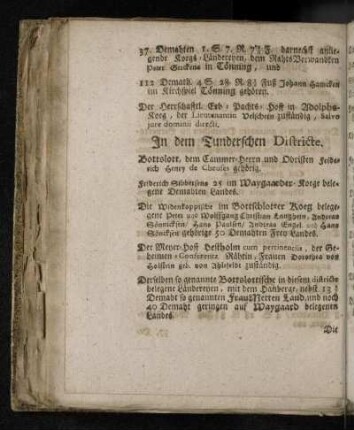 37. Demahten 1. S. 7. R. 7½ F. darnechst anlie-
gende Koegs-Ländereyen, dem Rahts Verwandten
Peter Gerckens in Tönning, und
112 Demath. 4 S. 28. R. 8½ Fuß Johann Hamcken
im Kirchspiel Tönning gehören.
Der Herrschaftl. Erb-Pachts-Hoff in Adolphs-
Koeg, der Lieutenantin zuständig, salvo
jure dominii directi.
In dem Tunderschen Districte.
Bottoloff, dem Cammer-Herrn und Obristen Fride-
rich Henry de Cheuses gehörig.
Friderich Sibbersens 25 im Waygaarder-Koege bele-
gene Demahten Landes.
Die im Bottschlotter Koeg belege-
gene Peter und Wolffgang Christian Langhein, Andreas
Sönnicksen, Hans Paulsen, Andreas Engel und Hans
Sönicksen gehörige 50 Demahten Frey Landes.
Der Meyer-Hoff Hestholm cum pertinentiis, der Ge-
heimen-Conferentz-Rähtin, Frauen Dorothea von
Holstein geb. von Ahlefeldt zuständig.
Derselben so genannte Bottoloffische in diesem districte
belegene Ländereyen, mit dem Hanberge, nebst 13½
Demaht so genannten Frau Metten Land, und noch
40 Demaht geringen auf Waygaard belegenen
Landes.
Die